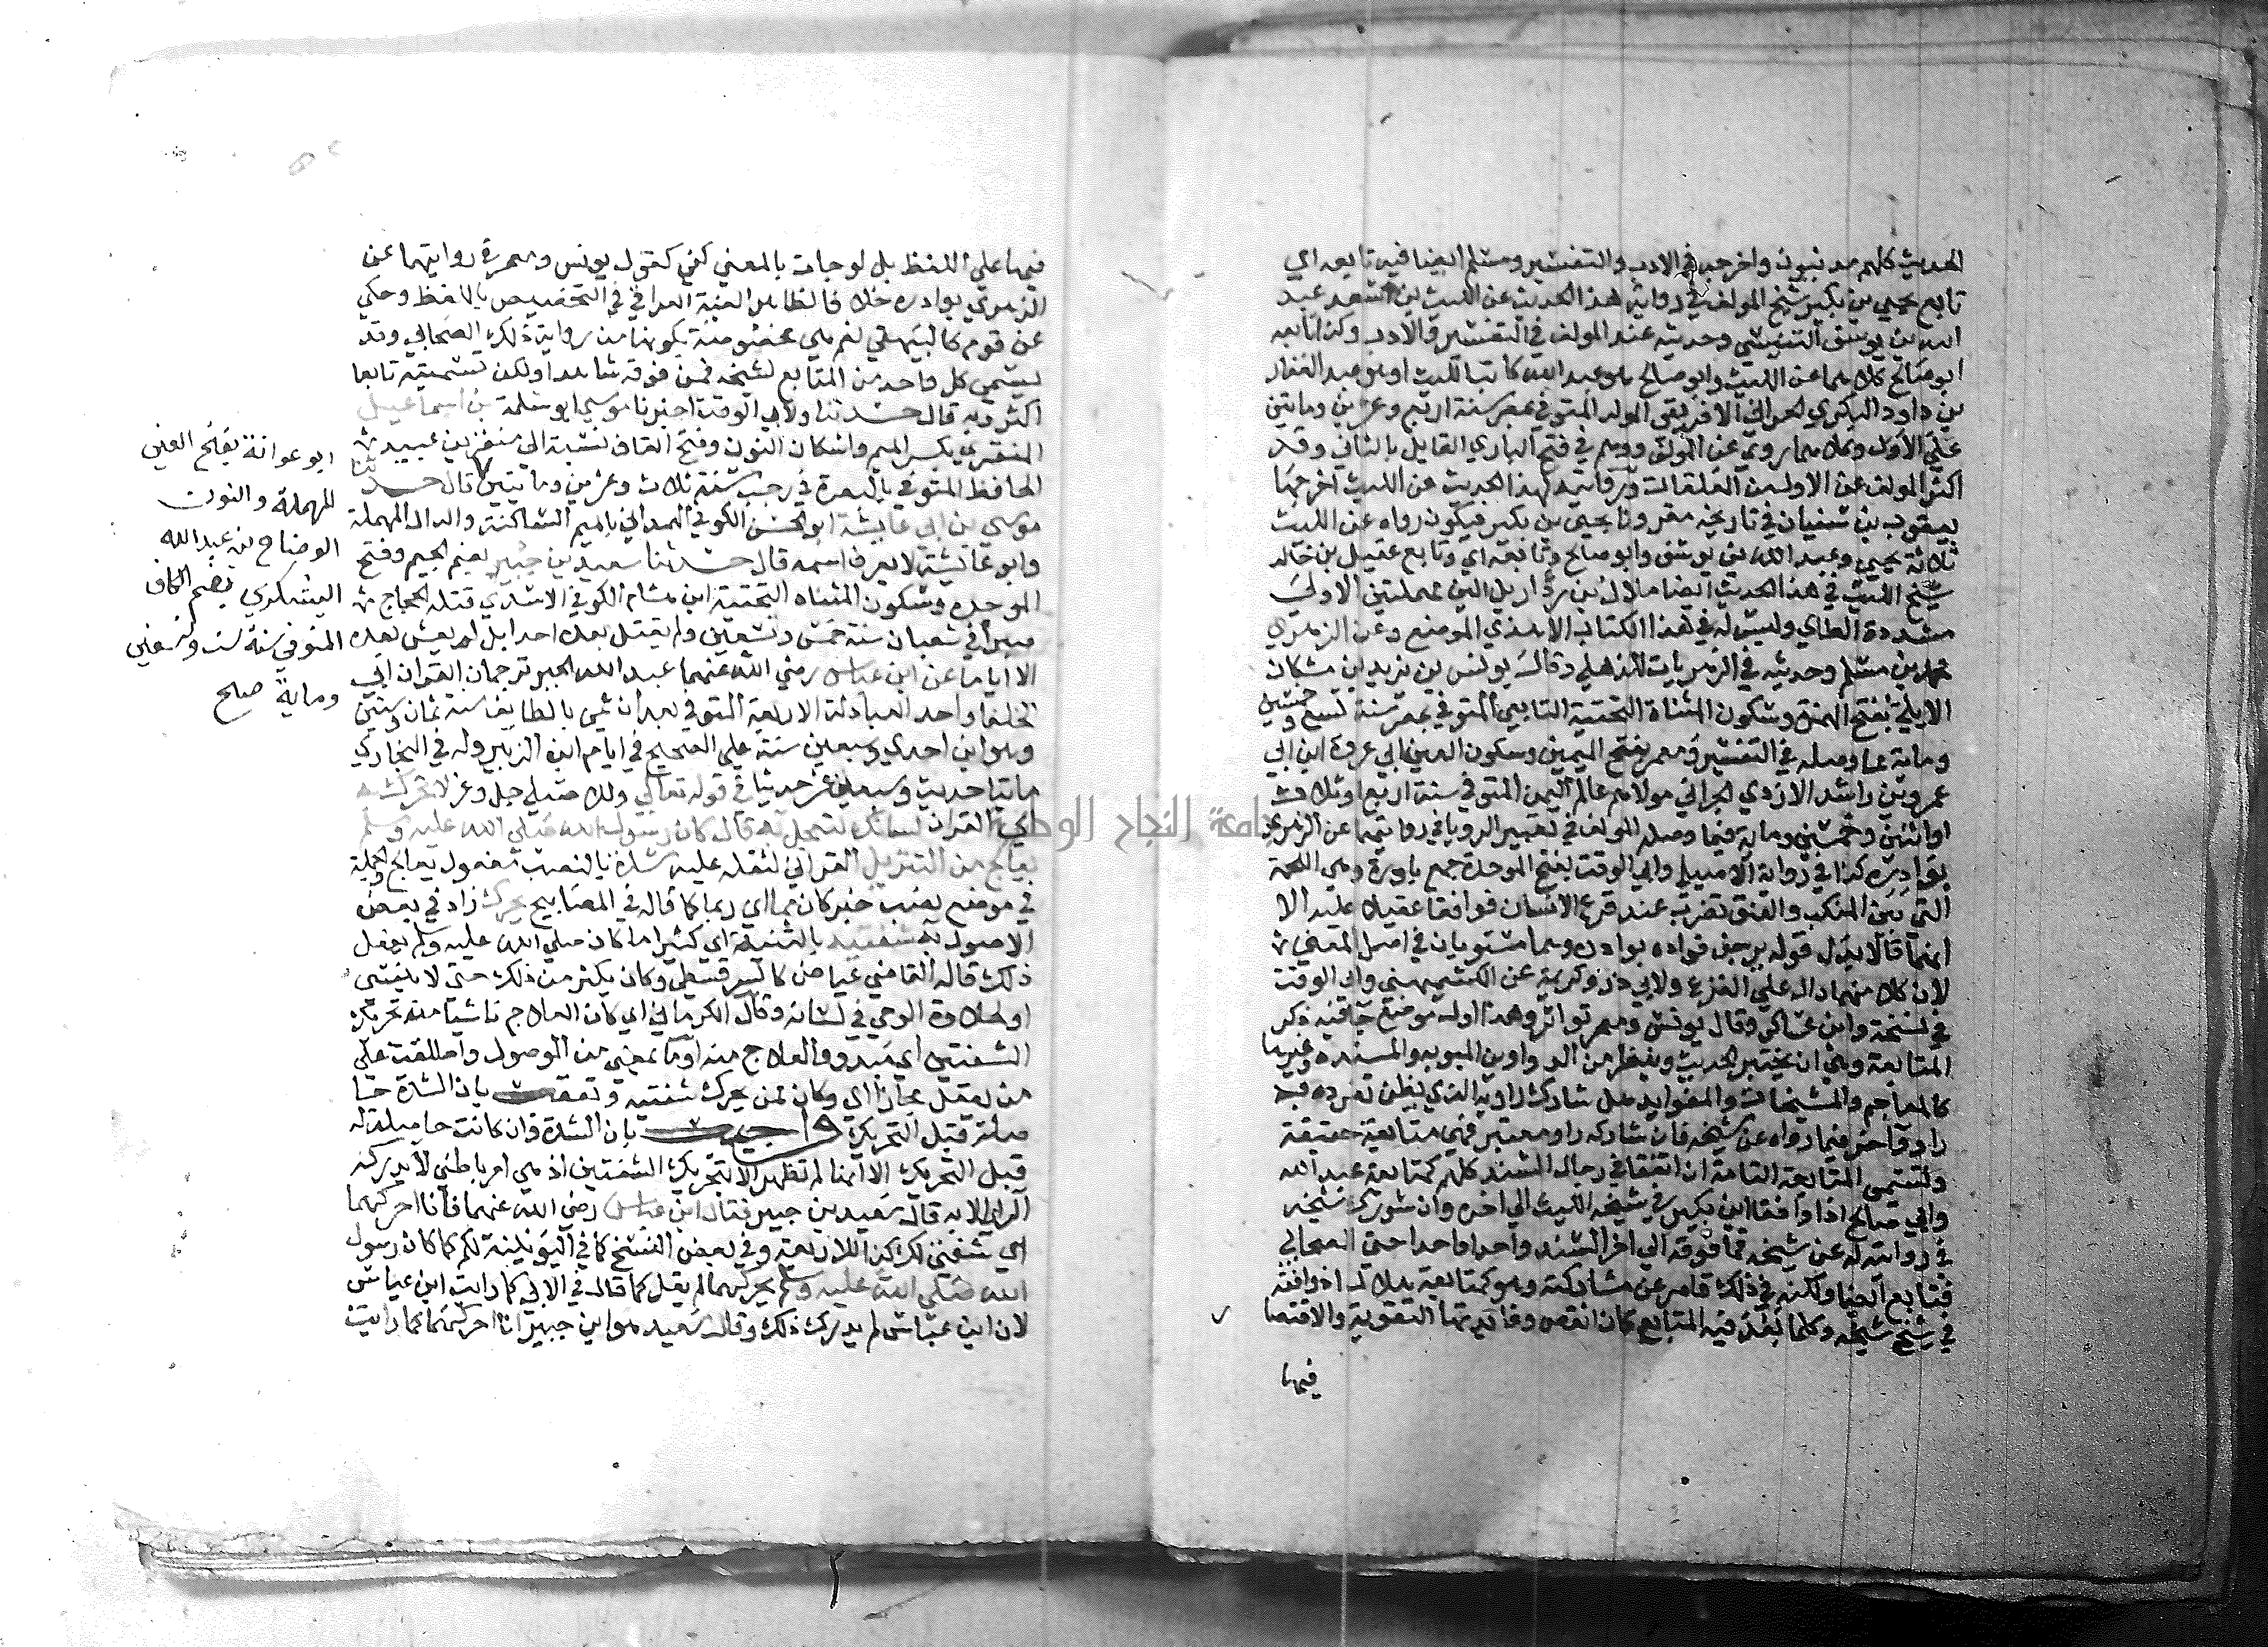 الحديث كلهم مدنيون واخرجه في الادب والتفسير ومسلم ايضا فيه تابعه اي
تابع يحيي بن بكير شيخ المولف في رواية هذا الحديث عن الليث بن سعد عبد
الله بن يوسف التنيسي وحديثه عند المولف في التفسير والادب وكذا تابعه
ابو صالح كلاهما عن الليث وابو صالح هو عبد الله كاتب الليث او هو عبد الغفار
بن داود البكري الحراني الافريقي المولد المتوفي بمصر سنة اربع وعشرين وماتين
علي الاول وكلاهما روي عن المولف ووهم في فتح الباري القايل بالثاني وقد
اكثر المولف عن الاول من المعلقات ورواية لهذا الحديث عن الليث اخرجها
يعقوب بن سفيان في تاريخه مقرونا بيحيي بن بكير فيكون رواه عن الليث
ثلاثة يحيي وعبد الله بن يوسف وابو صالح وتابعه اي وتابع عقيل بن خالد
شيخ الليث في هذا الحديث ايضا هلال بن رداد بدالين مهملتين الاولي
مشددة الطاي وليس له في هذا الكتاب الا هذا الموضع وعن الزهري
محمد بن مسلم وحديثه في الزهريات للذهلي وقال يونس بن يزيد بن مشكان
الايلي بفتح الهمزة وسكون المثناة التحتية التابعي المتوفي بمصر سنة تسع وخمسين
وماية مما وصله في التفسير ومعمر بفتح الميمين وسكون العين ابي عروة ابن ابي
عمرو بن راشد الازدي الحراني مولاهم عالم اليمن المتوفي سنة اربع او ثلاث
او اثنين وخمسين وماية فيما وصله المولف في تعبير الرويا في روايتهما عن الزهري
بوادره كذا في رواية الاصيلي وابي الوقت بفتح الموحدة جمع بادرة وهي اللحمة
التي بين المنكب والعنق تضرب عند فزع الانسان فوافقا عقيلا عليه الا
انهما قالا بدل قوله يرجف فواده بوادره وهما مستويان في اصل المعني
لان كلا منهما دال علي الفزع ولابي ذر وكريمة عن الكشميهني وابي الوقت
في نسخة وابن عساكر وقال يونس ومعمر بوادره وهذا اول موضع جا فيه ذكر
المتابعة وهي ان يختبر الحديث وينظر من الدواوين المبوبة والمسندة وغيرهما
كالمعاجم والمشيخات والفوايد هل شارك راويه الذي يظن تفرده به
راو اخر فيما رواه عن شيخه فان شاركه راو معتبر فهي متابعة حقيقة
وتسمي المتابعة التامة ان اتفقا في رجال السند كلهم كمتابعة عبد الله
وابي صالح اذا وافقا ابن بكير في شيخه الليث الي اخره وان شورك شيخه
في روايته له عن شيخه فما فوقه الي اخر السند واحدا واحدا حتي الصحابي
فتابع ايضا ولكنه في ذلك قاصر عن مشاركته وهو كمتابعة هلال اذ وافقه
في شيخ شيخه وكلما بعد فيه المتابع كان انقص وفايدتها التقوية والاقتصا
فيها
فيها علي اللفظ بل لو جات بالمعني كفي كقول يونس ومعمر في روايتهما عن
الزهري بوادره خلافا لظاهر الفية العراقي في التخصيص باللفظ وحكي
عن قوم كالبيهقي نعم هي مخصوصة بكونها من رواية ذلك الصحابي وقد
يسمي كل واحد من المتابع لشيخه فمن فوقه شاهدا ولكن تسميته تابعا
اكثر وبه قال حدثنا ولابي الوقت اخبرنا موسي ابو سلمة بن اسماعيل
المنقري بكسر الميم واسكان النون وفتح القاف نسبة الي منقر بن عبيد
الحافظ المتوفي بالبصرة في رجب سنة ثلاث وعشرين وماتين قال حدثنا
موسي بن ابي عايشة ابو الحسن الكوفي الهمداني بالميم الساكنة والدال المهملة
وابو عايشة لا يعرف اسمه قال حدثنا سعيد بن جبير بضم الجيم وفتح
الموحدة وسكون المثناة التحتية ابن هشام الكوفي الاسدي قتله الحجاج
صبرا في شعبان سنة خمس وتسعين ولم يقتل بعده احدا بل لم يعش بعده
الا اياما عن ابن عباس رضي الله عنهما عبد الله الحبر ترجمان القران ابي
الخلفا واحد العبادلة الاربعة المتوفي بعد ان عمي بالطايف سنة ثمان وستين
وهو ابن احدي وسبعين سنة علي الصحيح في ايام ابن الزبير وله في البخاري
مايتا حديث وسبعة عشر حديثا في قوله تعالي ولابي ذر عز وجل لا تحرك به
اي القران لسانك لتعجل به قال كان رسول الله صلي الله عليه وسلم
يعالج من التنزيل القراني لثقله عليه شدة بالنصب مفعول يعالج والجملة
في موضع نصب خبر كان مما اي ربما كما قاله في المصابيح يحرك زاد في بعض
الاصول به شفتيه بالتثنية اي كثيرا ما كان صلي الله عليه وسلم يفعل
ذلك قاله القاضي عياض كالسرقسطي وكان يكثر من ذلك حتي لا ينسي
او لحلاوة الوحي في لسانه وقال الكرماني اي كان العلاج ناشيا من تحريك
الشفتين اي مبدوو العلاج منه او ما بمعني من الموصول واطلقت علي
من يعقل مجازا اي وكان ممن يحرك شفتيه وتعقب بان الشدة
حاصلة قبل التحريك واجيب بان الشدة وان كانت حاصلة له
قبل التحريك الا انها لم تظهر الا بتحريك الشفتين اذ هي امر باطني لا يدركه
الراي الا به قال سعيد بن جبير فقال ابن عباس رضي الله عنهما فانا احركهما
اي شفتي لك كذا للاربعة وفي بعض النسخ كما في اليونينية لكم كما كان رسول
الله صلي الله عليه وسلم يحركهما لم يقل كما قال في الاتي كما رايت ابن عباس
لان ابن عباس لم يدرك ذلك وقال سعيد هو ابن جبير انا احركهما كما رايت
ابو عوانة بفتح العين
المهملة والنون
الوضاح بن عبد الله
اليشكري بضم الكاف
المتوفي سنة ست وتسعين
وماية صلح
جامعة النجاح الوطنية